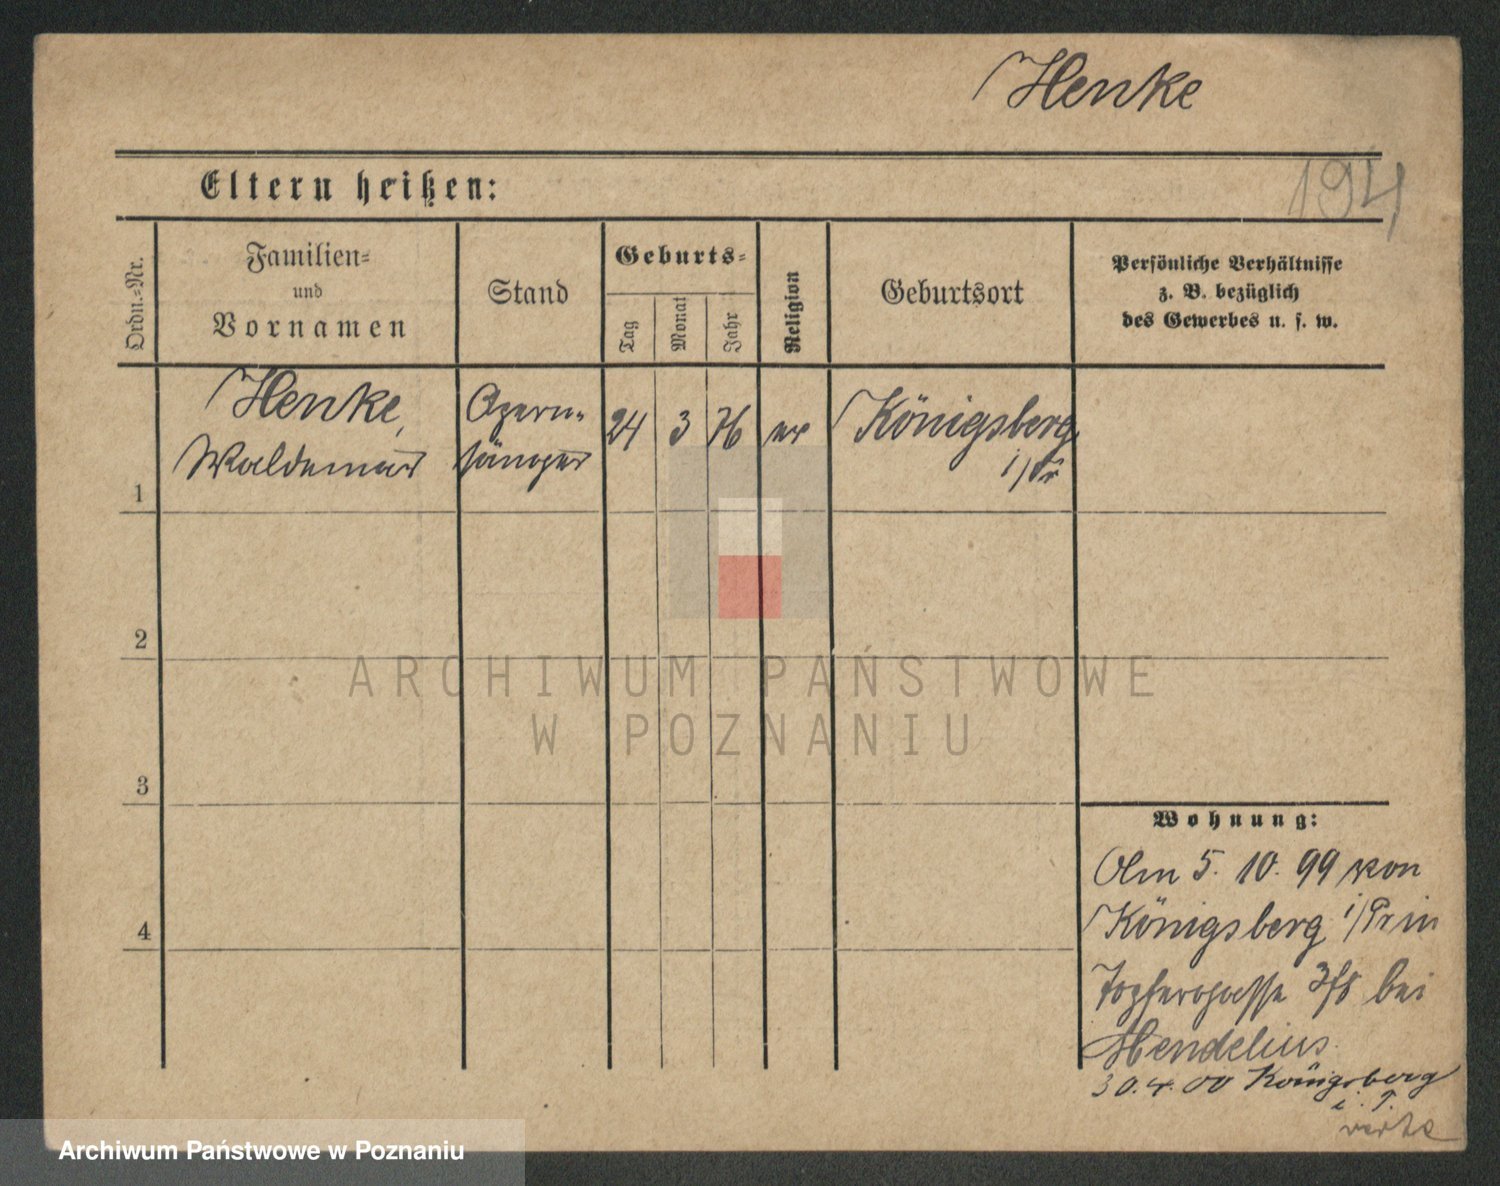 Henke
194
Eltern heißen:
Ordn.=Nr.
Familien=
und
Vornamen
Stand
Geburts=
Tag
Monat
Jahr
Religion
Geburtsort
Persönliche Verhältnisse
z. B. bezüglich
des Gewerbes u. s. w.
1
Henke,
Waldemar
Opern=
sänger
24
3
76
ev
Königsberg
i/Pr
2
3
4
Wohnung:
Am 5. 10. 99 von
Königsberg i/Pr in
Töpfergasse 3/8 bei
Mendelius.
30.4.00 Königsberg
i. P.
ARCHIWUM PAŃSTWOWE
W POZNANIU
Archiwum Państwowe w Poznaniu